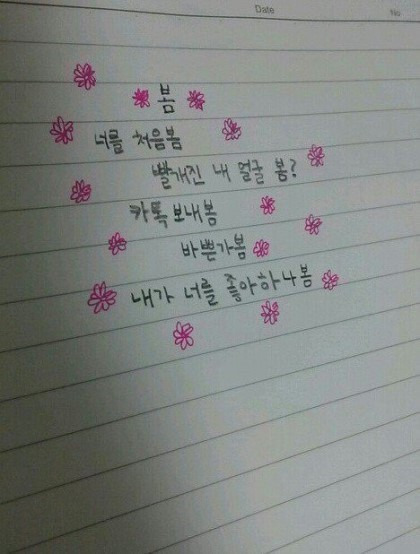 Date
No
봄
너를 처음봄
빨개진 내 얼굴 봄?
카톡 보내봄
바쁜가봄
내가 너를 좋아하나봄